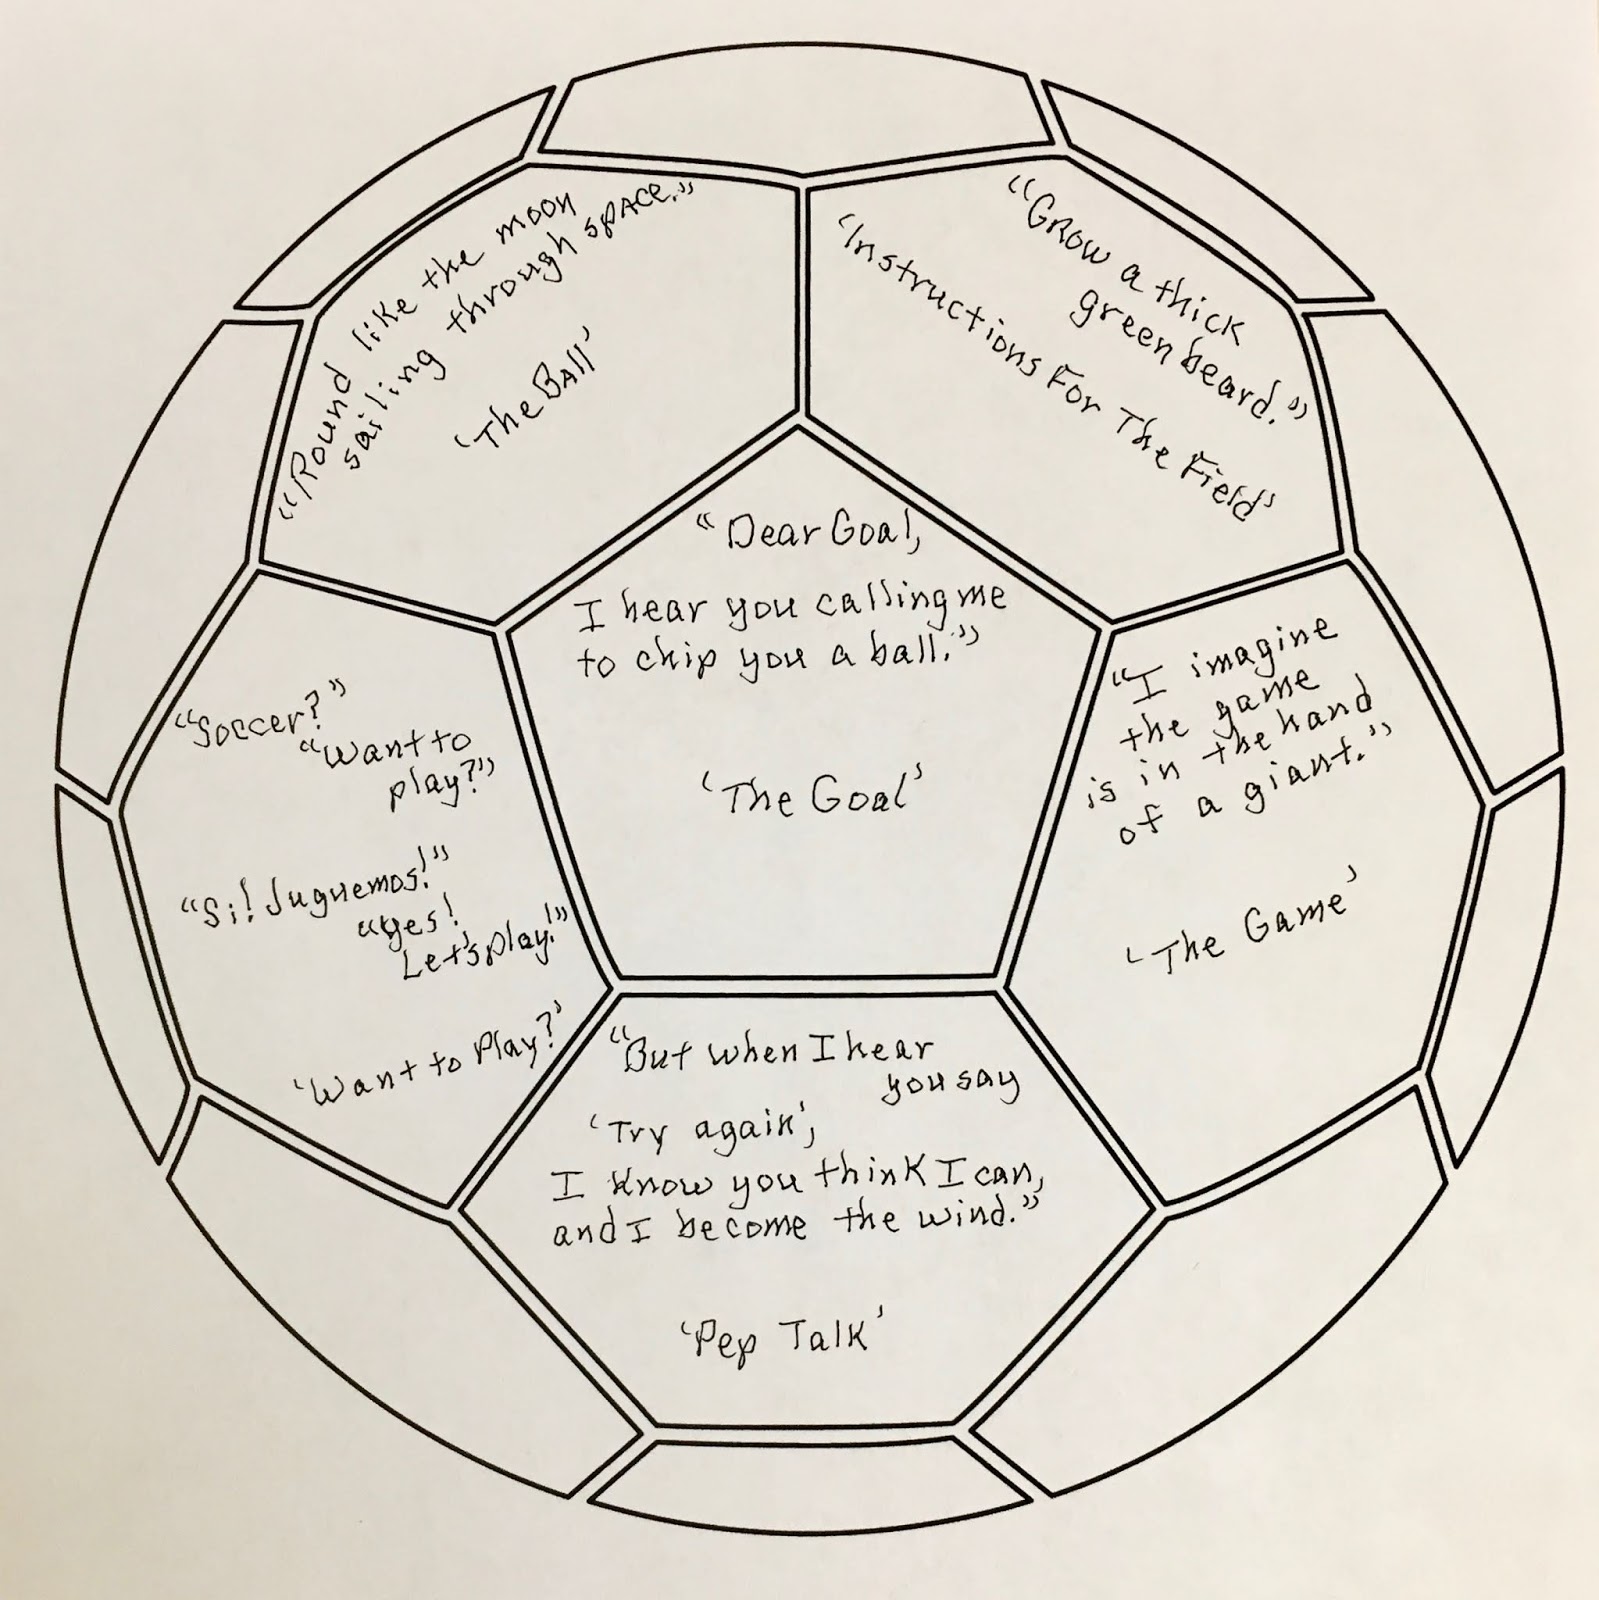 "Round like the moon
sailing through space."
'The Ball'
"Grow a thick
green beard."
'Instructions For The Field'
"Dear Goal,
I hear you calling me
to chip you a ball."
'The Goal'
"Soccer?"
"Want to
play?"
"Si! Juguemos!"
"Yes!
Let's play!"
'Want to Play?'
"I imagine
the game
is in the hand
of a giant."
'The Game'
"But when I hear
you say
'Try again',
I know you think I can,
and I become the wind."
'Pep Talk'